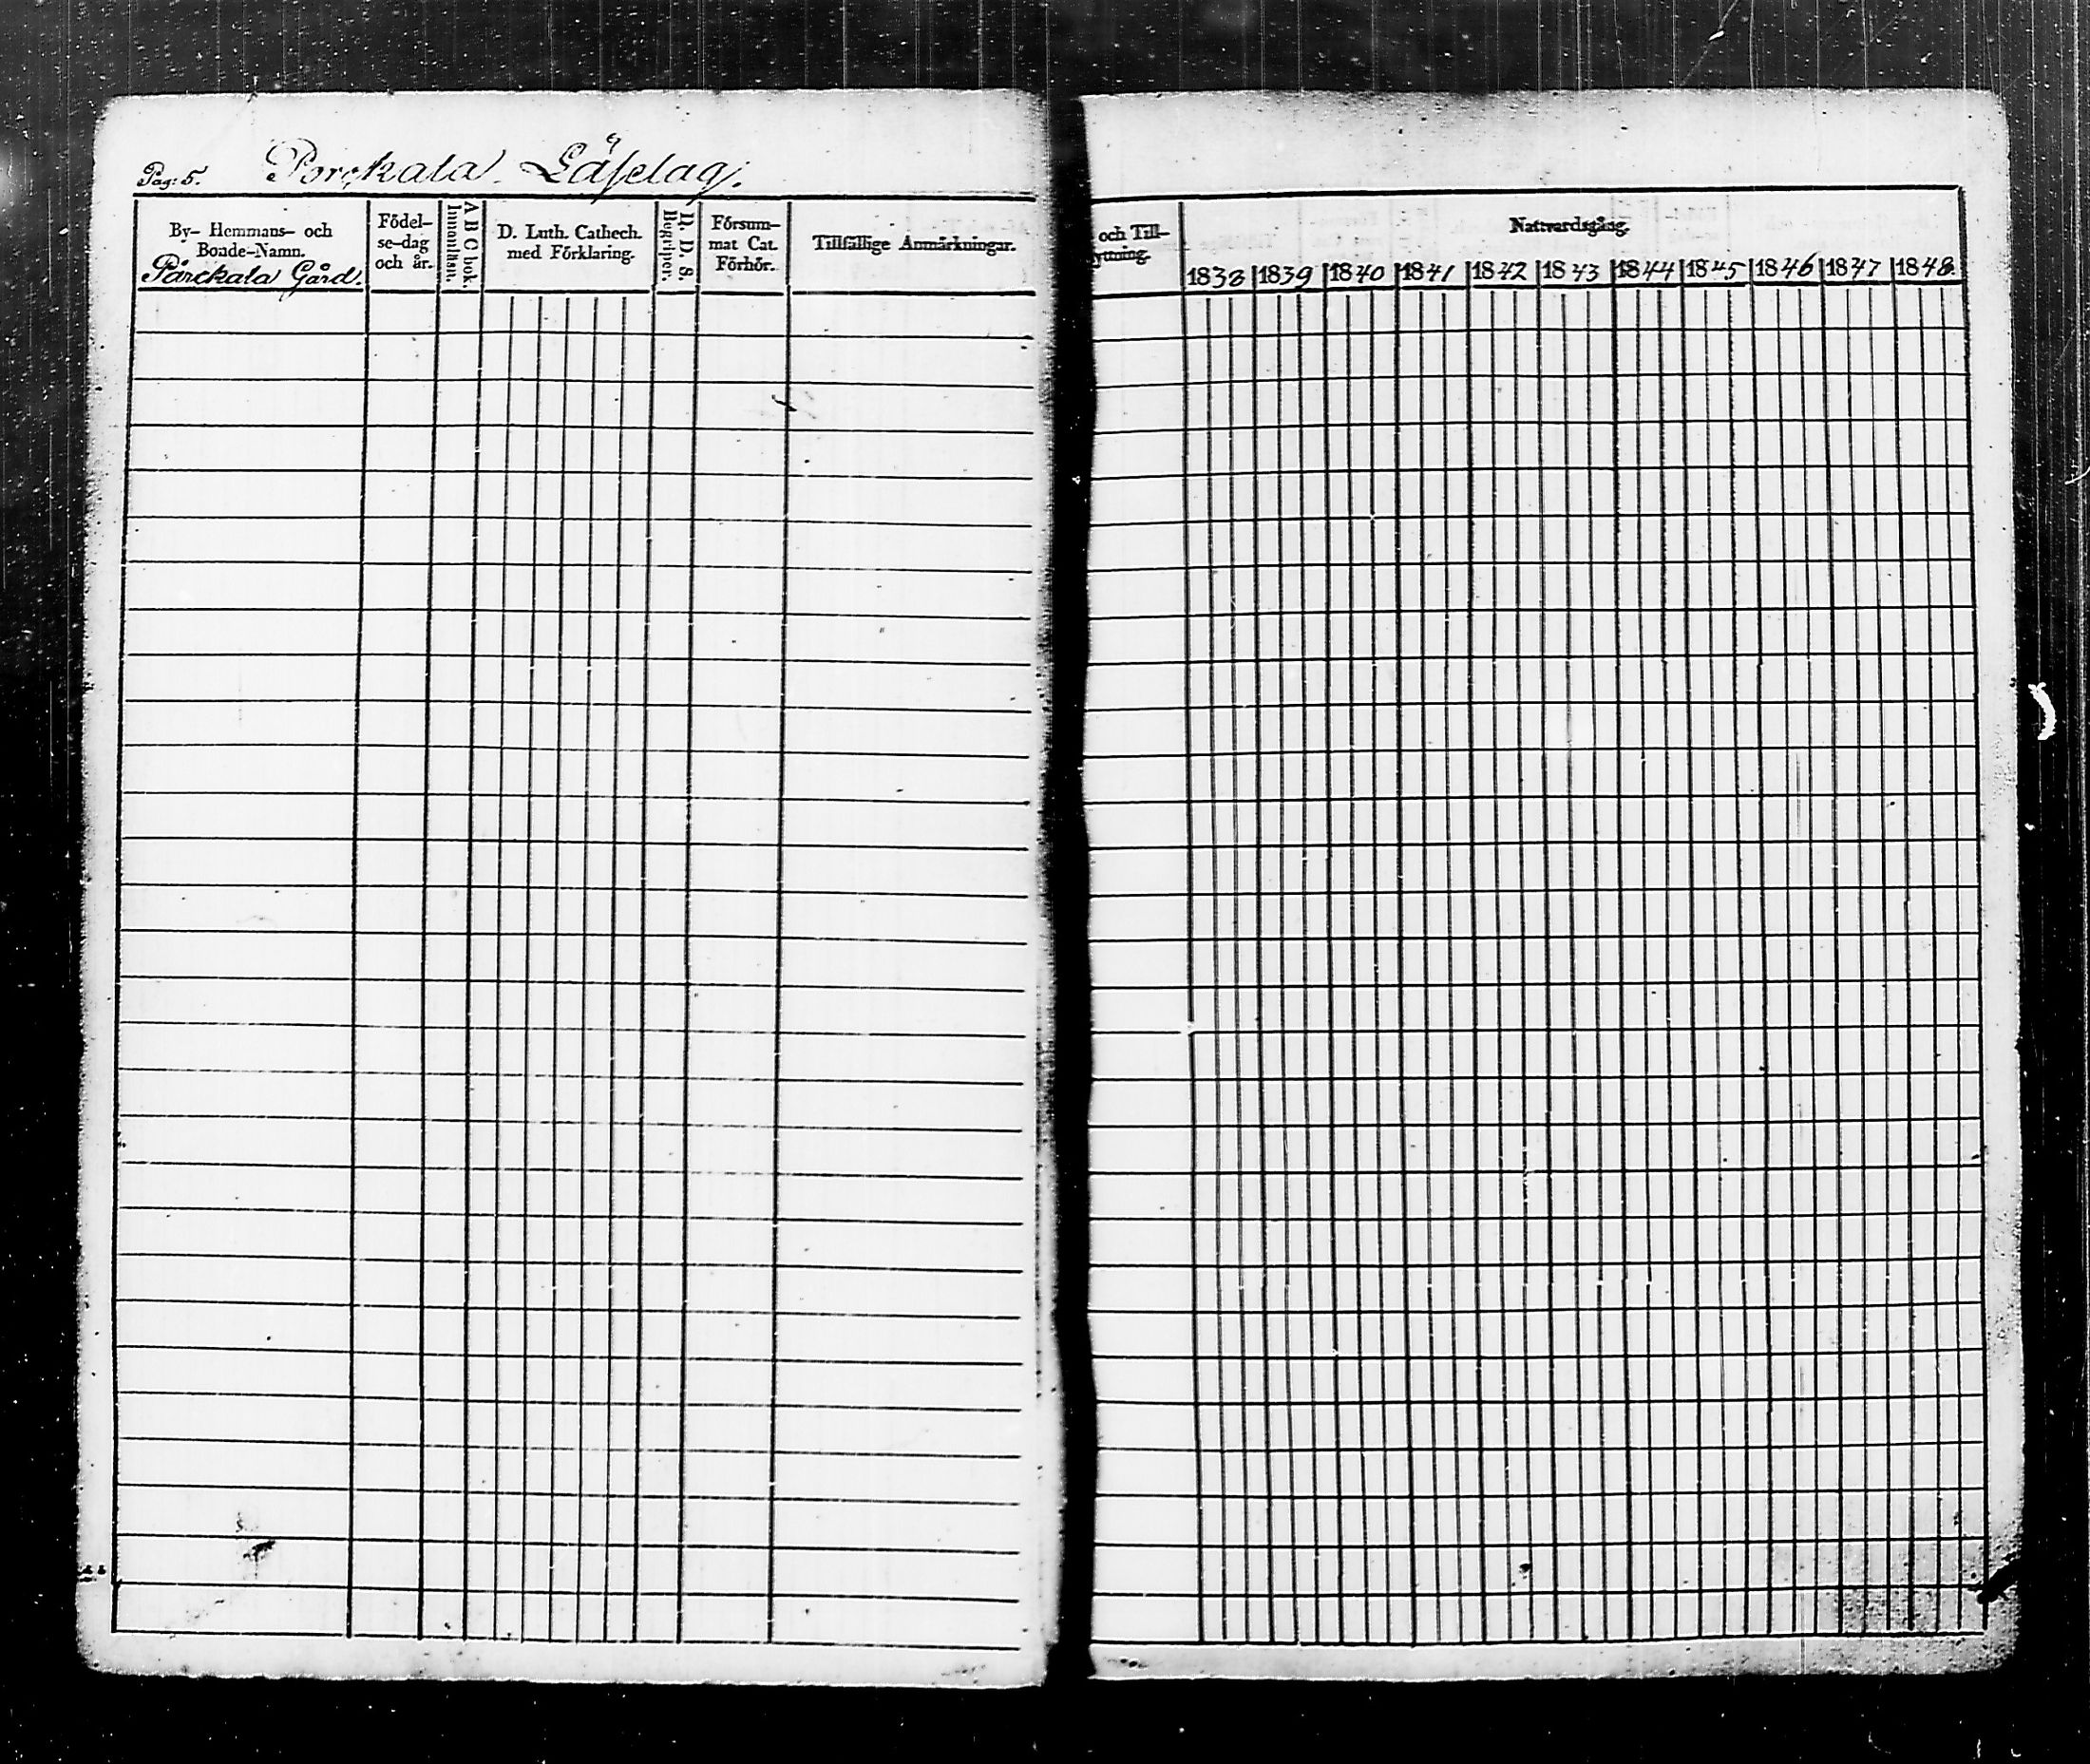 Pag: 5. Porckala Läselag.
By- Hemmans- och
Boade-Namn.
Porckala Gård.
Födel-
se-dag
och år.
A B C bok.
Innantläsn.
D. Luth. Cathech.
med Förklaring.
D. D. S.
Begriper.
Försum-
mat Cat.
Förhör.
Tillfällige Anmärkningar.
och Till-
yttning.
Nattvardsgång.
1838 1839 1840 1841 1842 1843 1844 1845 1846 1847 1848.